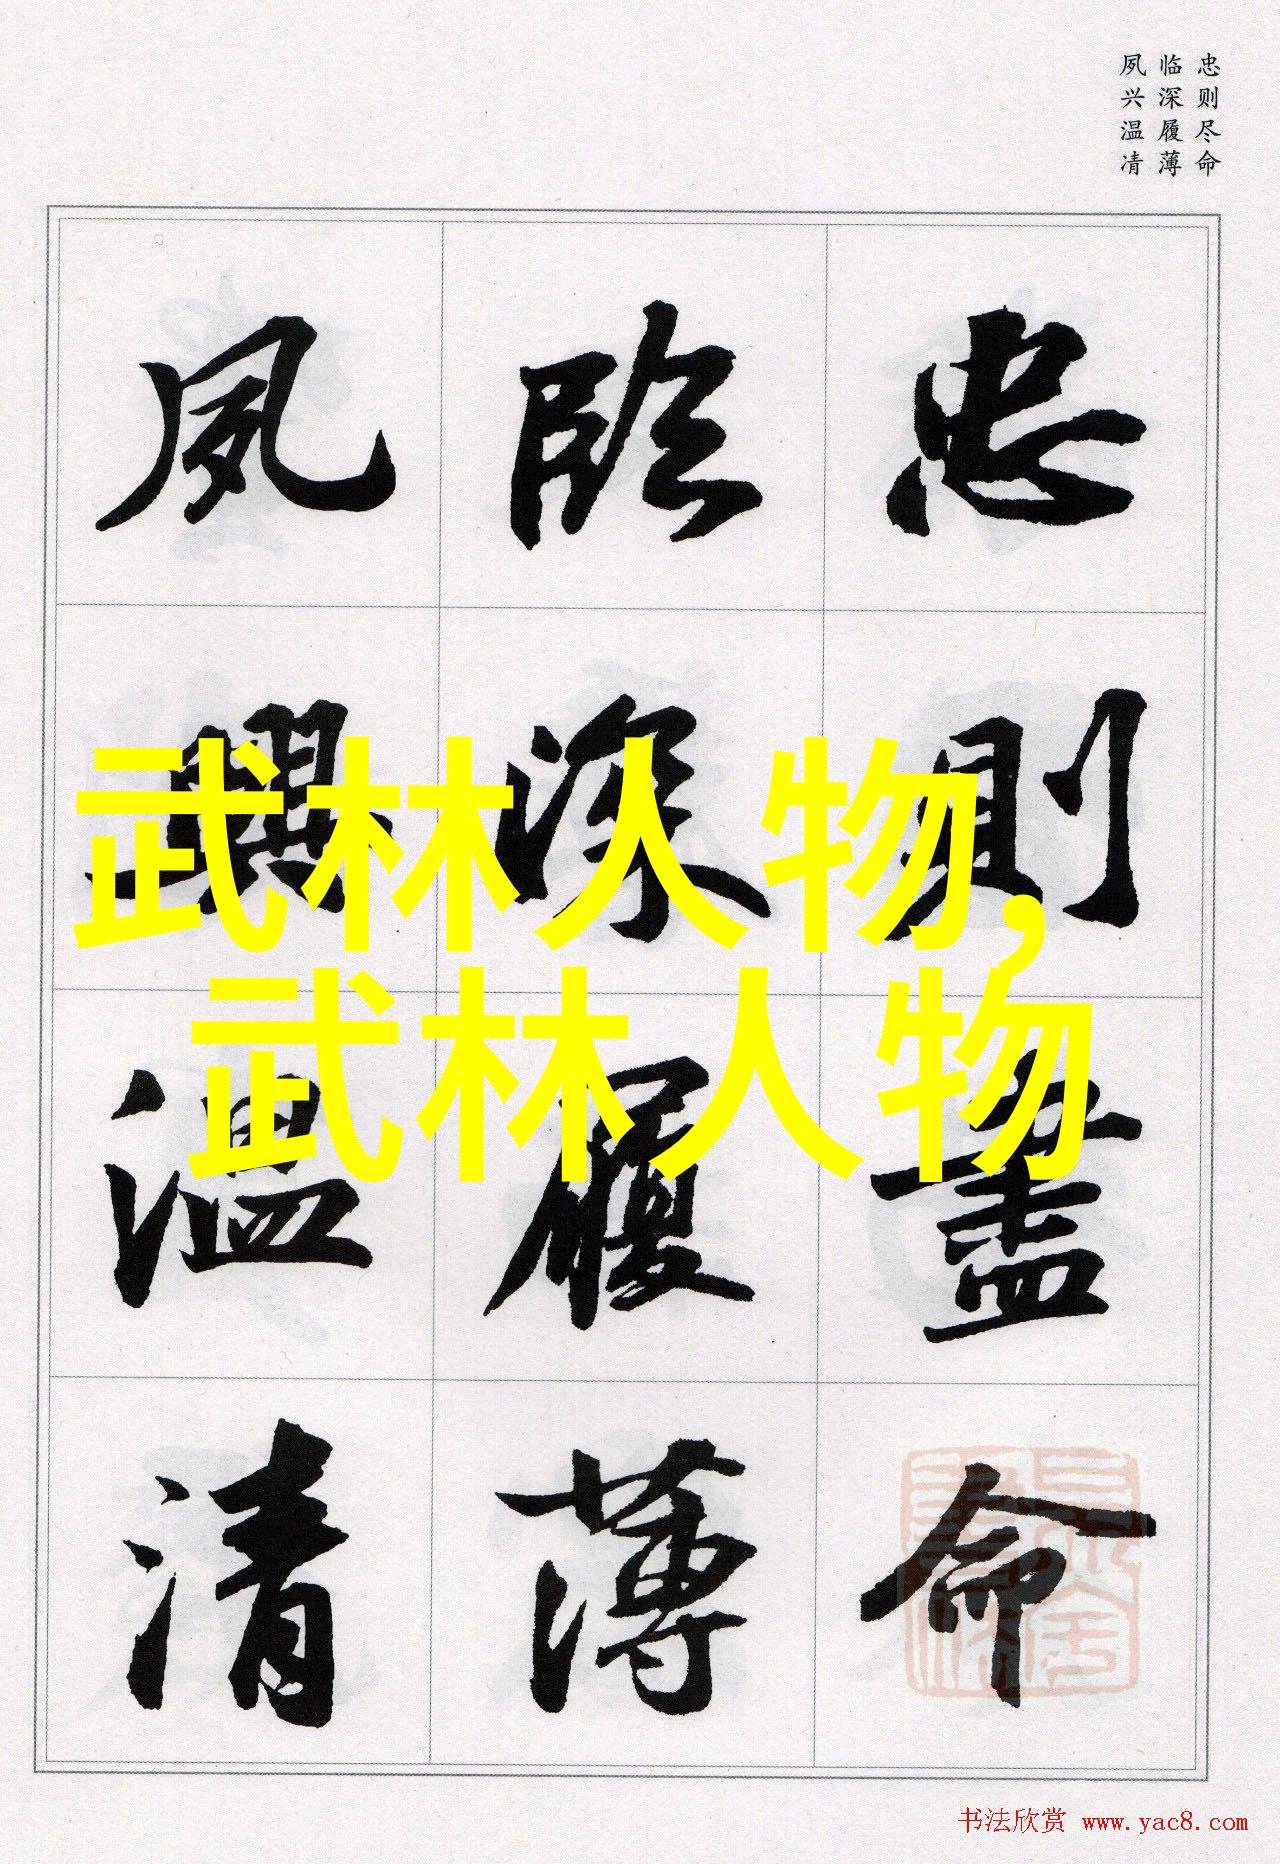 忠则尽命
临深履薄
夙兴温凊
忠則盡命
臨深履薄
夙興温清
武林人物,
武林人物
书法欣赏 www.yac8.com